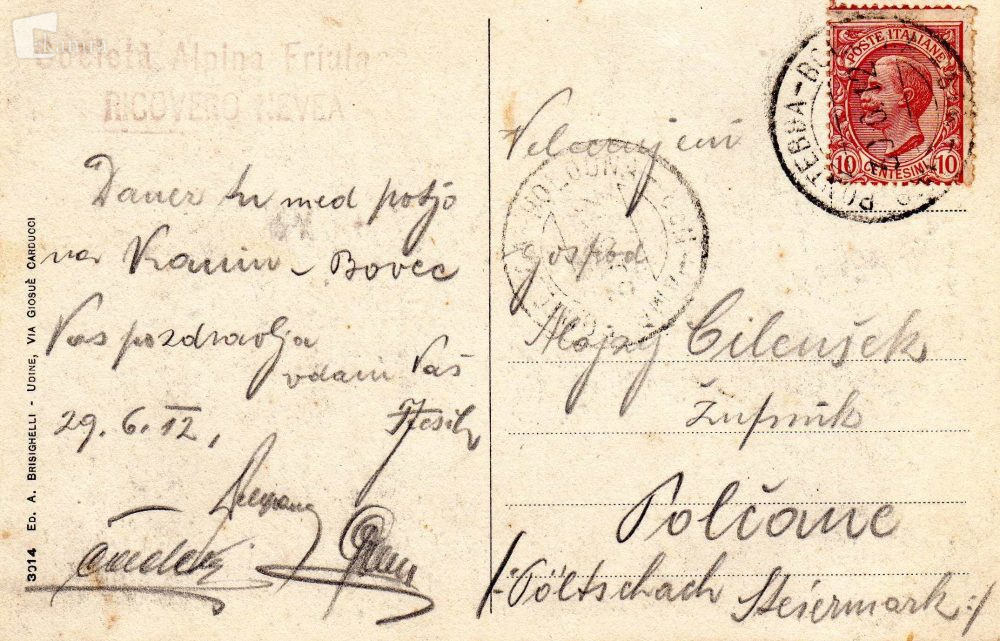 Società Alpina Friulana
RICOVERO NEVEA
Danes tu med potjo
na Kanin - Bovec
Vas pozdravlja
vdani Vaš
29. 6. 12,
3014 ED. A. BRISIGHELLI - UDINE, VIA GIOSUÈ CARDUCCI
POSTE ITALIANE
10 CENTESIMI 10
PONTEBBA-BO
Velecenjeni
gospod
Alojzij Cilenšek
Župnik
Polčane
/:Pöltschach Steiermark:/